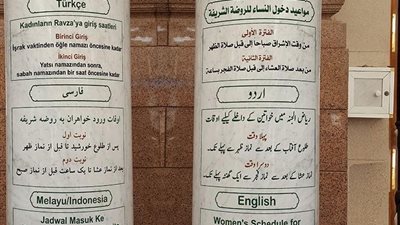 Türkçe
Kadınların Ravza'ya giriş saatleri
Birinci Giriş
İşrak vaktinden öğle namazı öncesine kadar
İkinci Giriş
Yatsı namazından sonra,
sabah namazından bir saat öncesine kadar
فارسی
اوقات ورود خواهران به روضه شریفه
نوبت اول
پس از طلوع خورشید تا قبل از نماز ظهر
نوبت دوم
بعد از نماز عشا تا یک ساعت قبل از نماز صبح
Melayu/Indonesia
Jadwal Masuk Ke
مواعيد دخول النساء للروضة الشريفة
الفترة الأولى
من وقت الإشراق صباحا إلى قبل صلاة الظهر
الفترة الثانية
من بعد صلاة العشاء إلى قبل صلاة الفجر بساعة
اردو
ریاض الجنہ میں خواتین کے داخلے کیلئے اوقات
پہلا وقت
طلوع آفتاب کے بعد سے نماز ظہر سے پہلے تک۔
دوسرا وقت
نماز عشاء کے بعد سے نماز فجر سے ایک گھنٹہ پہلے تک۔
English
Women's Schedule for